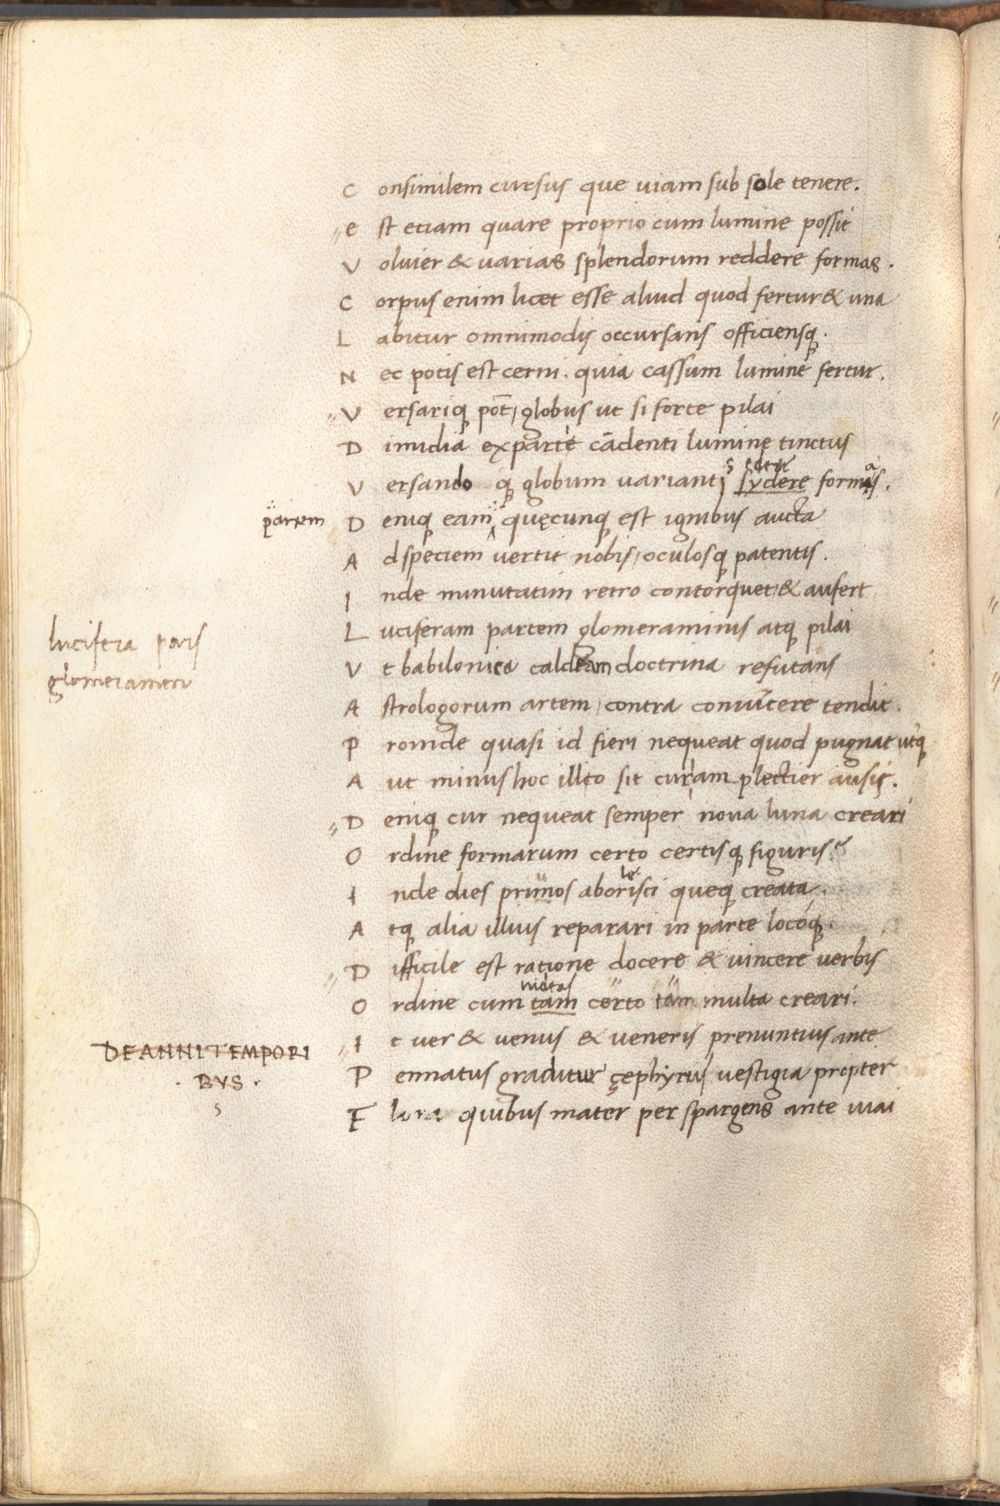 C onsimilem cursus que uiam sub sole tenere.
E st etiam quare proprio cum lumine possit
V oluier & uarias splendorum reddere formas.
C orpus enim licet esse aliud quod fertur & una
L abitur omnimodis occursans officiensq;
N ec potis est cerni. quia cassum lumine fertur.
V ersariq; pot̄, globus ut si forte pilai
D imidia ex parte cādenti lumine tinctus
s edere a
V ersando q; globum uarianti sydere formis.
partem D eniq; eam quęcunq; est ignibus aucta
A d speciem uertit nobis, oculosq; patentis.
I nde minutatim retro contorquet, & aufert
L uciferam partem glomeraminis atq; pilai
lucifera pars
V t babilonica caldeam doctrina refutans
glomeramen
A strologorum artem, contra conuīcere tendit.
P roinde quasi id fieri nequeat quod pugnat utq;
A ut minus hoc illto sit cur, am plectier ausis.
D eniq; cur nequeat semper noua luna creari
O rdine formarum certo certisq; figuris?
I nde dies primos aborisci queq; creata.
A tq; alia illius reparari in parte locoq;.
D ifficile est ratione docere & uincere uerbis
O rdine cum tam certo tam multa creari.
I t uer & uenus & ueneris prenuntius ante
DE ANNI TEMPORI
BVS.
P ennatus graditur çephyrus uestigia propter
F lora quibus mater per spargens ante uiai